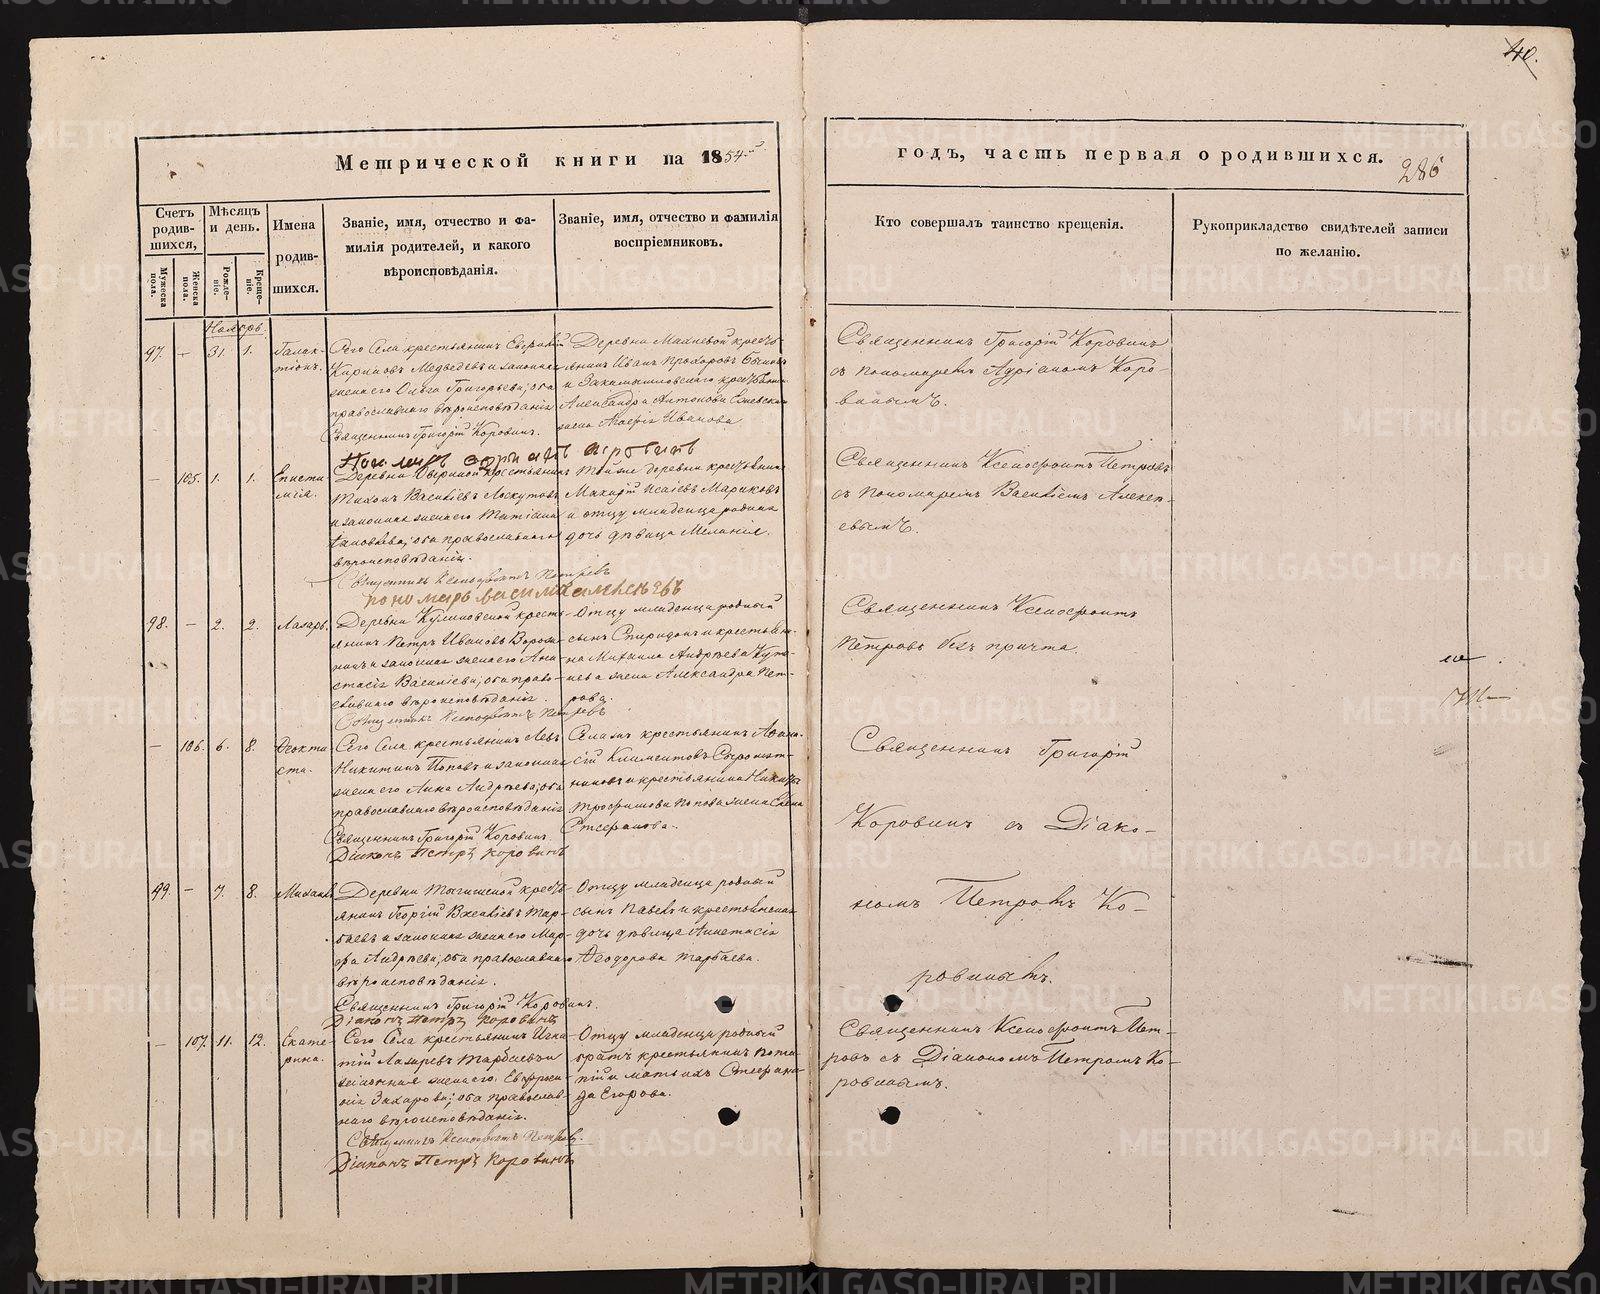 40.
Метрической книги на 1854й
годъ, часть первая о родившихся.
286
Счетъ родив-
шихся,
Мужеска пола.
Женска пола.
Мѣсяцъ и день.
Рожде-
ніе.
Креще-
ніе.
Имена
родив-
шихся.
Званіе, имя, отчество и фа-
милія родителей, и какого
вѣроисповѣданія.
Званіе, имя, отчество и фамилія
воспріемниковъ.
Кто совершалъ таинство крещенія.
Рукоприкладство свидѣтелей записи
по желанію.
Ноябрь.
97. – 31. 1.
Галак-
тіонъ.
Сего Села крестьянинъ
Медведевъ и законная
жена его Ольга Григорьева, оба
православнаго вѣроисповѣданія
Священникъ Григорій Коровинъ.
Деревни Махневой кресть-
янинъ Иванъ Прохоровъ
жена Марія Иванова
Священникъ Григорій Коровинъ
съ пономаремъ Адріаномъ Коро-
винымъ.
– 105. 1. 1.
Еписти
мія.
Деревни крестьянинъ
Тихонъ Васильевъ Лоскутовъ
и законная жена его Татіана
оба православнаго
вѣроисповѣданія.
Священникъ Ксенофонтъ Петровъ
пономарь василий алексѣевъ
Той же деревни
Исаіевъ Мариковъ
и отцу младенца родная
дочь дѣвица Меланія.
Священникъ Ксенофонтъ Петровъ
съ пономаремъ Василіемъ Алексе-
евымъ.
98. – 2. 2.
Лазарь.
Деревни Куликовской кресть-
янинъ Петръ Ивановъ
и законная жена его Ана-
стасія Васильева, оба право-
славнаго вѣроисповѣданія.
Священникъ Ксенофонтъ Петровъ
Отцу младенца родный
сынъ Спиридонъ и крестьяни-
на Михаила Андрѣева
жена Александра Пет-
рова.
Священникъ Ксенофонтъ
Петровъ безъ причта.
– 106. 6. 8.
Ѳеокти
ста.
Сего Села крестьянинъ Левъ
Никитинъ Поповъ и законная
жена его Анна Андрѣева, оба
православнаго вѣроисповѣданія
Священникъ Григорій Коровинъ.
Діаконъ Петръ Коровинъ
Села крестьянинъ Аѳана-
сій Климентовъ
и крестьянина Никиты
Трофимова Попова жена
Стефанова.
Священникъ Григорій
Коровинъ съ Діако-
номъ Петромъ Ко-
ровинымъ.
99. – 7. 8.
Михаилъ
Деревни кресть-
янинъ Георгій Васильевъ Тар-
баевъ и законная жена его Мар-
фа Андрѣева, оба православнаго
вѣроисповѣданія.
Священникъ Григорій Коровинъ.
Діаконъ Петръ Коровинъ
Отцу младенца родный
сынъ Павелъ и крестьянская
дочь дѣвица Анастасія
Ѳеодорова Тарбаева.
– 107. 11. 12.
Екате-
рина.
Сего Села крестьянинъ Игна-
тій Лазаревъ Тарбаевъ и
законная жена его Евфроси-
нія Захарова; оба православ-
наго вѣроисповѣданія.
Священникъ Ксенофонтъ Петровъ.
Діаконъ Петръ Коровинъ
Отцу младенца родный
братъ крестьянинъ
и мать ихъ Стефани-
да Егорова.
Священникъ Ксенофонтъ Пет-
ровъ съ Діакономъ Петромъ Ко-
ровинымъ.
METRIKI.GASO-URAL.RU